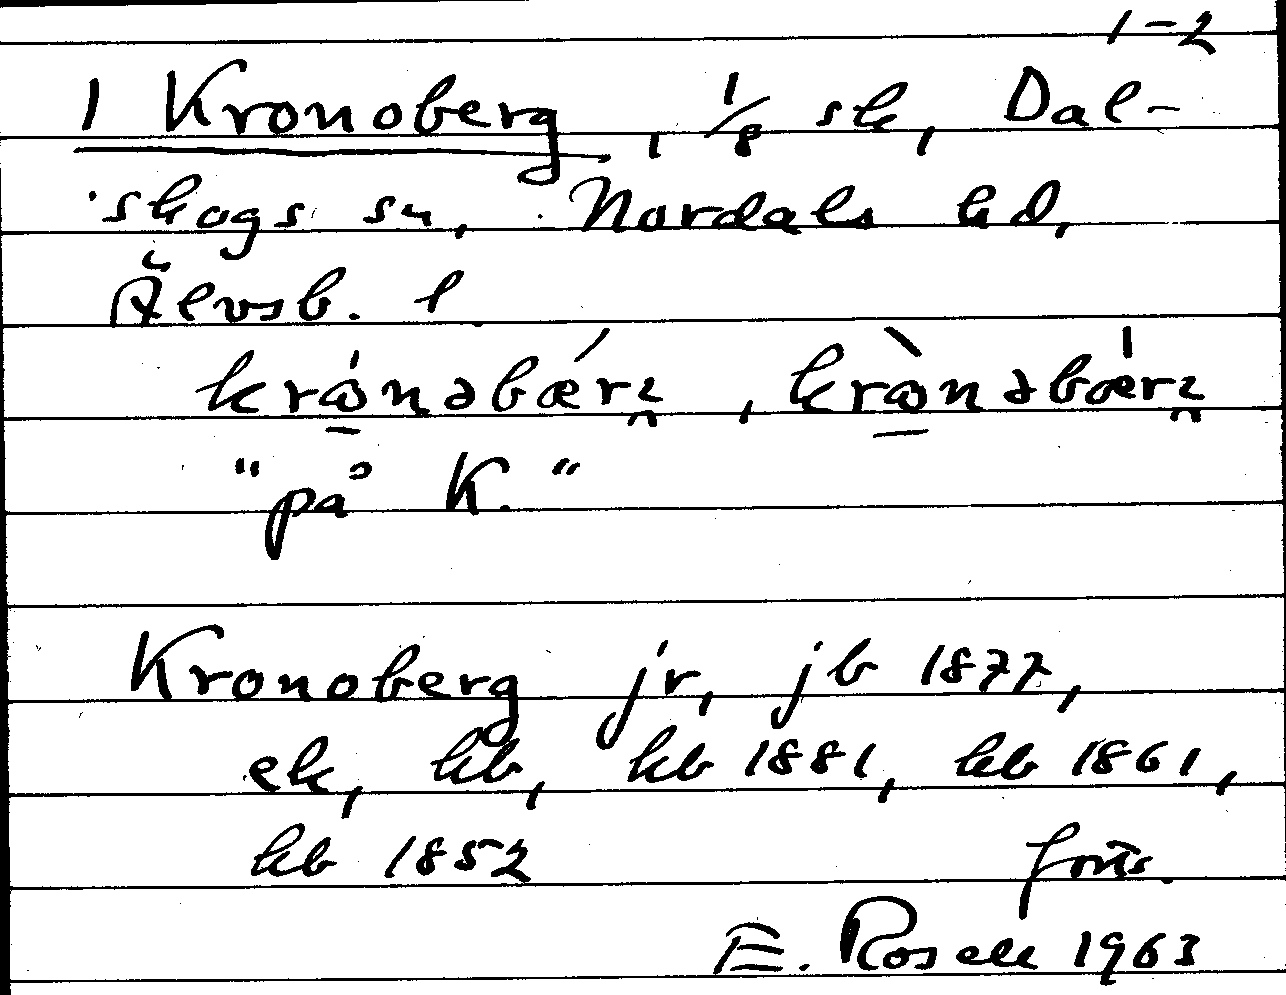 1-2
1 Kronoberg, 1/8 sk, Dal-
skogs sn, Nordals hd,
Älvsb. l
"på K."
Kronoberg jr, jb 1877,
ek, kb, kb 1881, kb 1861,
kb 1852 forts.
E. Rosell 1963